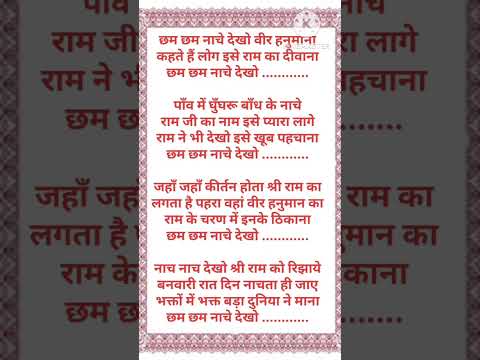 छम छम नाचे देखो वीर हनुमाना
कहते हैं लोग इसे राम का दीवाना
छम छम नाचे देखो ............
पाँव में घुँघरू बाँध के नाचे
राम जी का नाम इसे प्यारा लागे
राम ने भी देखो इसे खूब पहचाना
छम छम नाचे देखो ............
जहाँ जहाँ कीर्तन होता श्री राम का
लगता है पहरा वहां वीर हनुमान का
राम के चरण में इनके ठिकाना
छम छम नाचे देखो ............
नाच नाच देखो श्री राम को रिझाये
बनवारी रात दिन नाचता ही जाए
भक्तों में भक्त बड़ा दुनिया ने माना
छम छम नाचे देखो ............